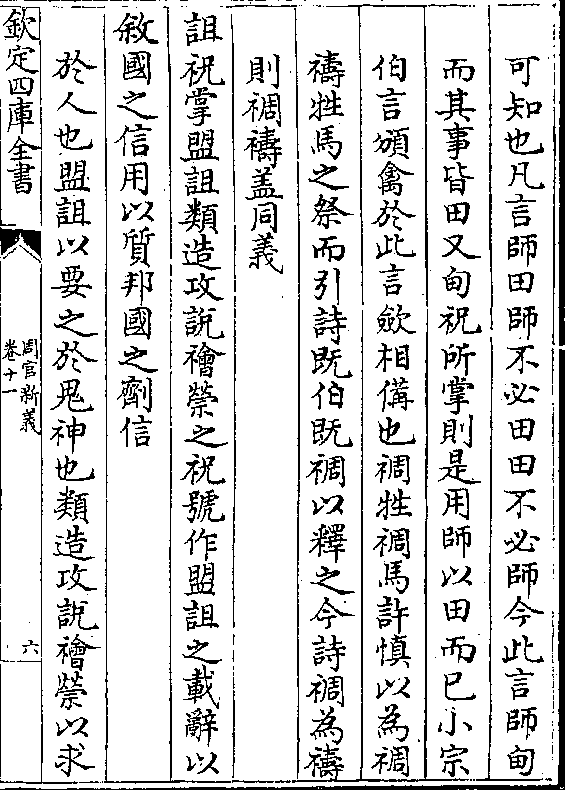 可知也凡言師田師不必田田不必師今此言師甸
而其事皆田又甸祝所掌則是用師以田而已小宗
伯言頒禽於此言斂相備也禂牲禂馬許慎以為禂
禱牲馬之祭而引詩既伯既禂以釋之今詩禂為禱
則禂禱盖同義
詛祝掌盟詛類造攻說禬禜之祝號作盟詛之載辭以
敘國之信用以質邦國之劑信
於人也盟詛以要之於鬼神也類造攻說禬禜以求
欽定四庫全書
周官新義
卷十一
六